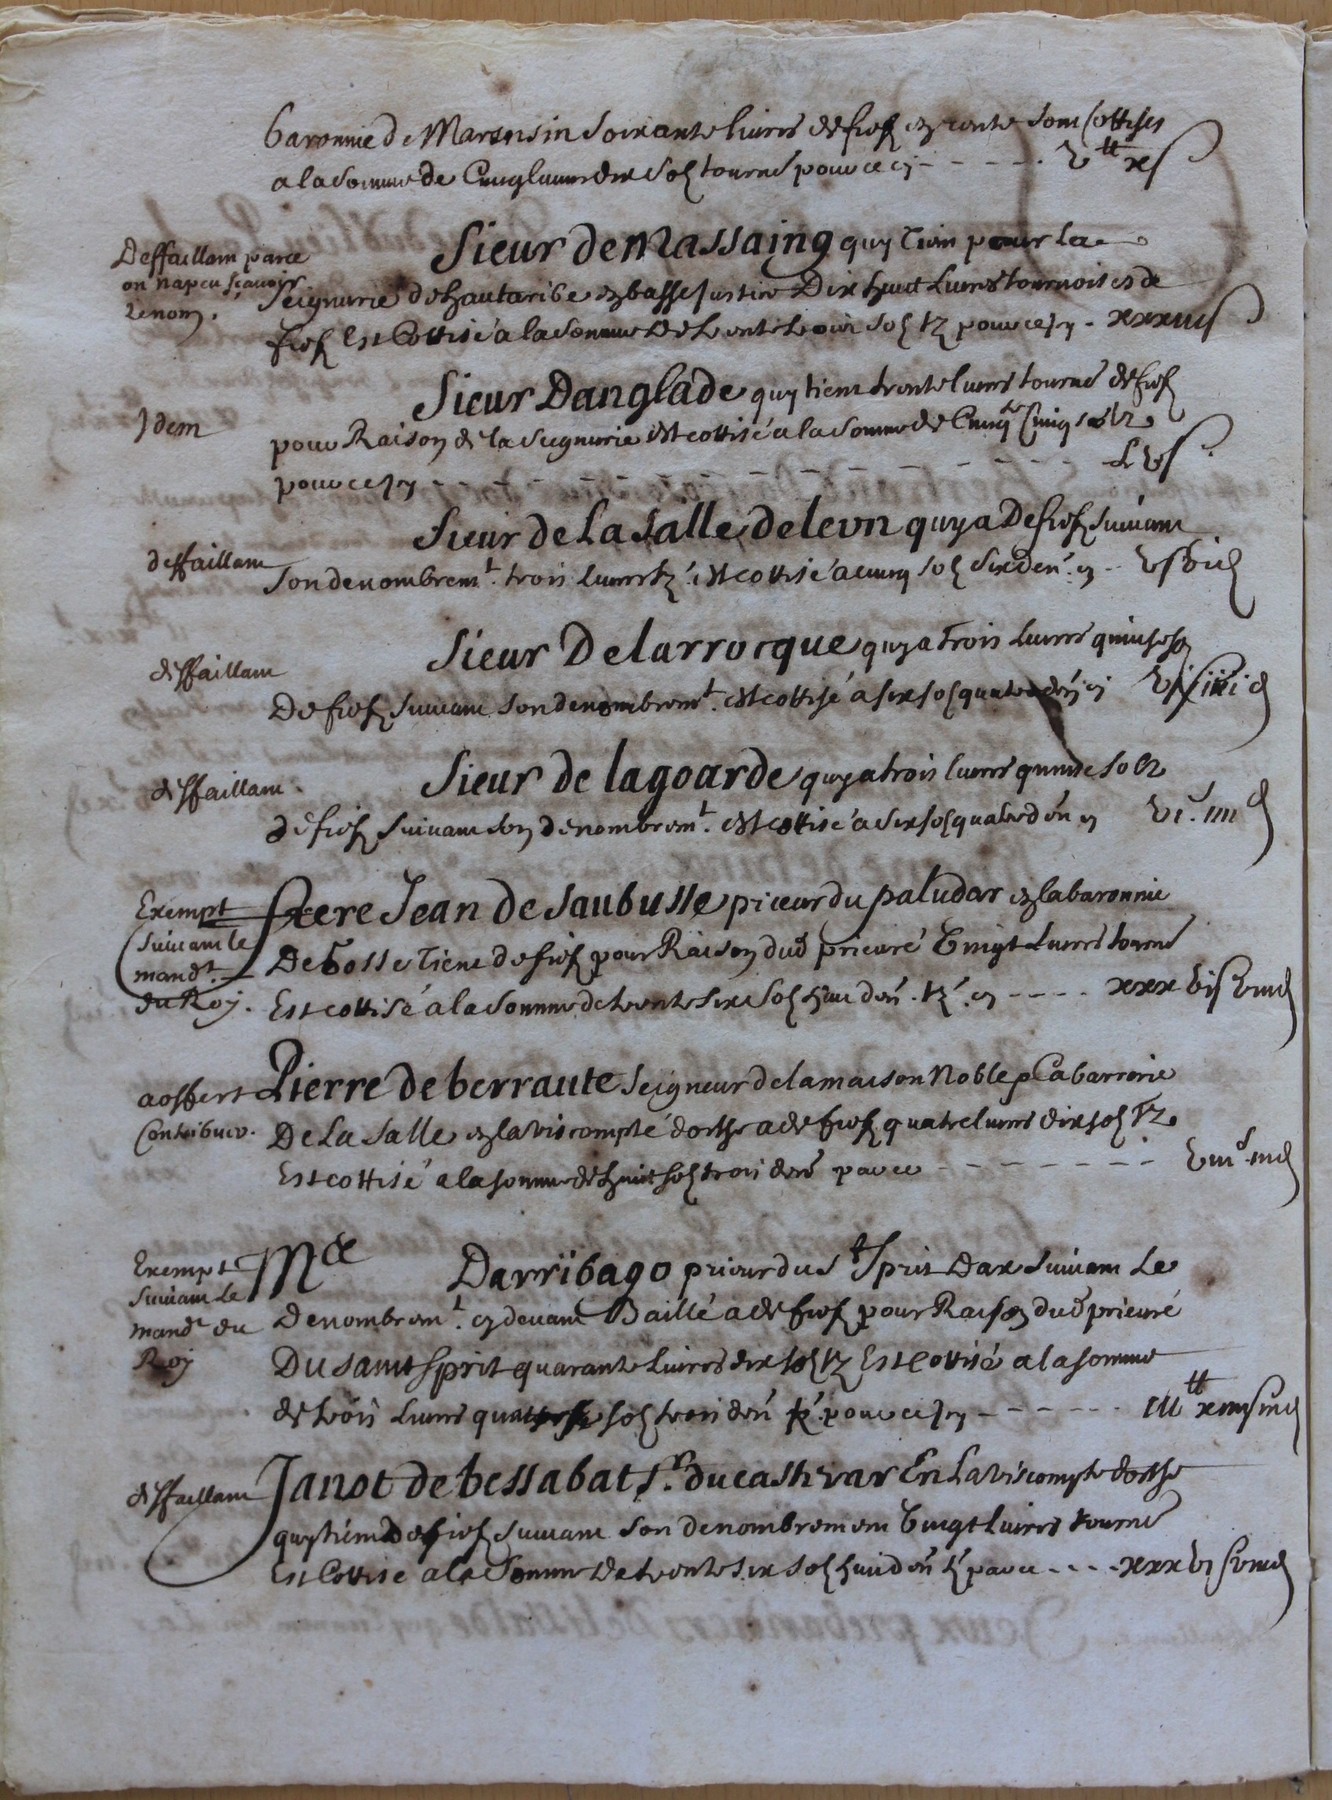 baronnie de Marensin soixante livres de fief et rente sont cottises
a la somme de Cinq livres dix solz tournois pour ce cy - - - - - v tt xs
Deffaillant parce
on na peu sçavoir
le nom.
Sieur de Massaing quy tient pour la
seigneurie de hautaribe et basse Justice Dix huit Livres tournoises de
fief Est Cottisé a la somme de trente trois solz tz pour ce Icy - xxxiiis
Idem
Sieur Danglade quy tient trente livres tournois de fief
pour Raison de la seigneurie est cottisé a la somme de Cinqte Cinq solz
pour ce Icy - - - - - - - - - - - - - - - Lvs
deffaillant
Sieur de La Salle deleon quy a De fief suivant
son denombremt. trois livres tz. est cottisé a cinq solz six den. cy - - vs vid
deffaillant
Sieur Delarrocque quy a trois livres quinse solz
De fief suivant son denombremt. est cottisé a six solz quatre den cy vis iiiid
deffaillant.
Sieur de lagoarde quy a trois livres quinse solz
de fief suivant son denombremt. est cottisé a six solz quatre den cy vi.s iiiid
Exempt
suivant le
mandt.
du Roy.
frere Jean de Saubusse prieur du paludar en la baronnie
De gosse Tient de fief pour Raison dud prieuré Vingt Livres tournois
Est cottisé a la somme de trente six solz huit den. tz. cy - - - - xxxvis viiid
a offert
Contribuer.
Pierre de berraute seigneur de la maison Noble Cabarrerie
De La Salle en la viscompté dorthe a de fief quatre livres dix solz tz
Est cottisé a la somme de huit solz trois den pour ce - - - - - - - viiis iiid
Exempt
suivant le
mandt du
Roy
Me Darribago prieur du St Sprit Dax suivant Le
Denombremt. cy devant Baillé a de fief pour Raison dud prieuré
Du saint Sprit quarante Livres dix solz tz Est Cottisé a la somme
de trois Livres quatorse solz trois den tz. pour ce Icy - - - - - - iii tt xiiiis iiid
deffaillant
Janot de bessabat Sr. du casterar En La viscompte dorthe
quy tient De fief suivant son denombrement Vingt livres tournois
Est Cottisé a la somme de trente six solz huit den tz pour ce - - - - xxxvis viiid